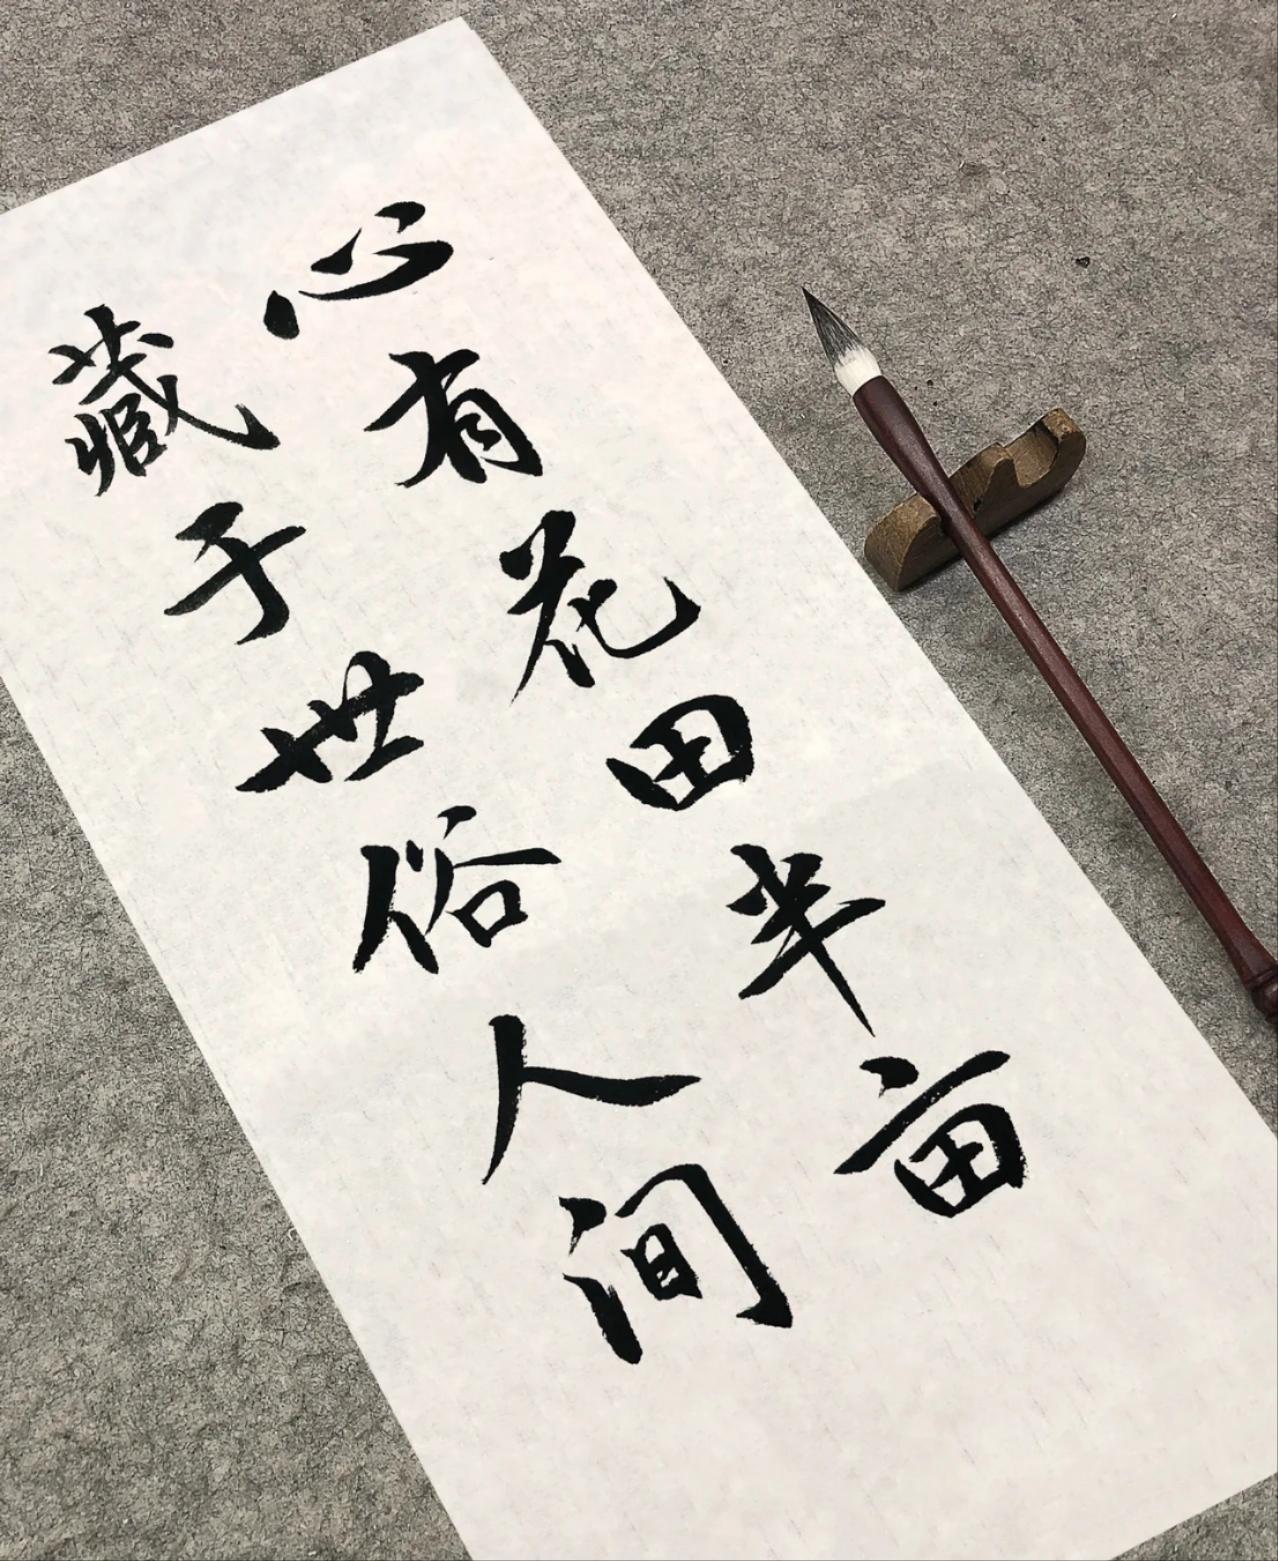 心有花田半亩
藏于世俗人间